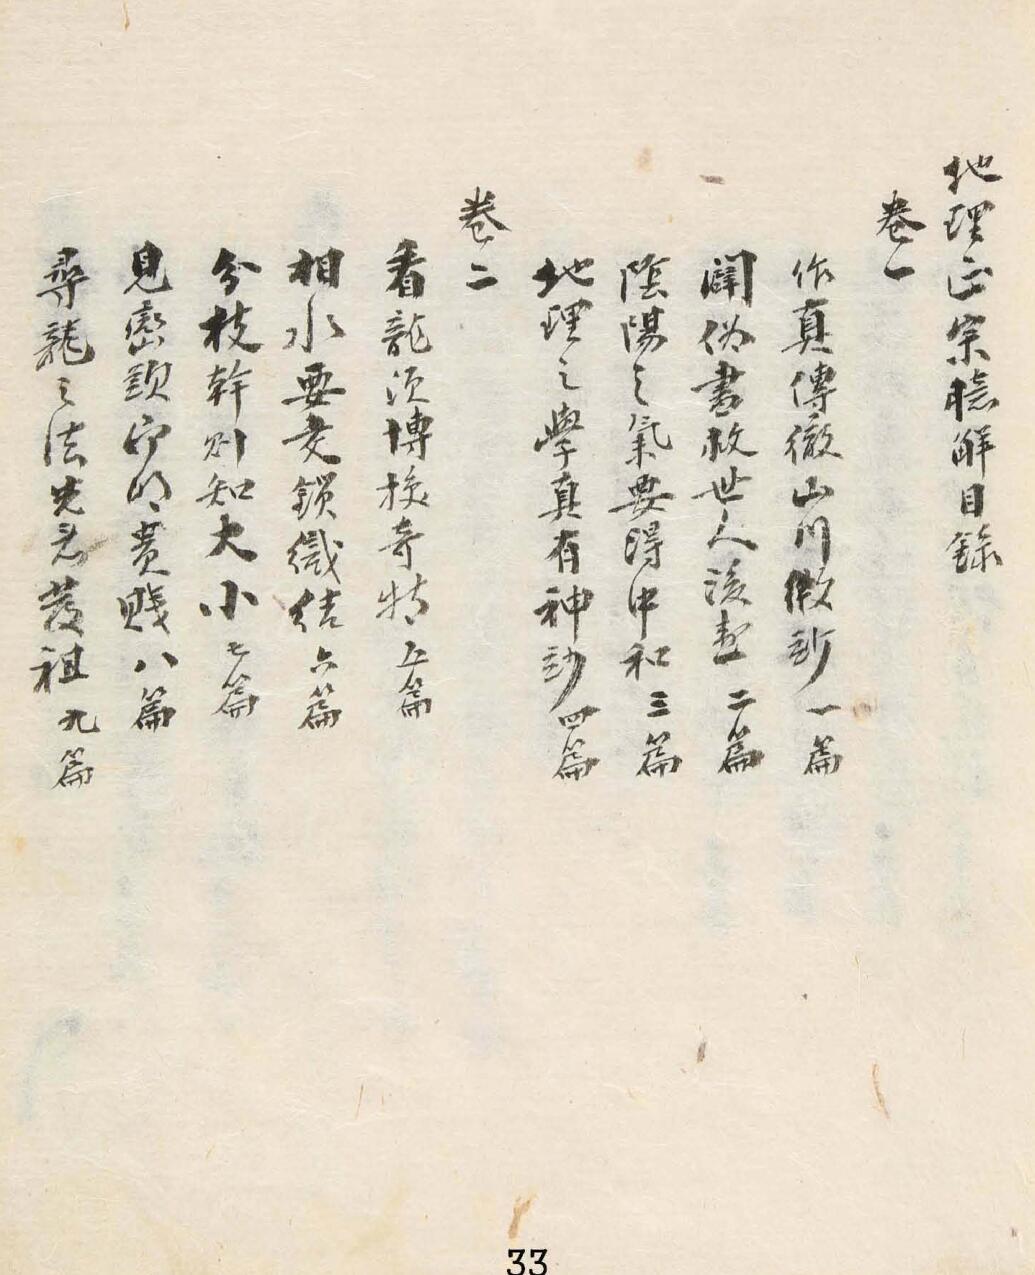 地理正宗臆解目錄
卷一
作真傳徹山川微玅 一篇
闢偽書救世人 二篇
陰陽之氣要得中和 三篇
地理之學真有神玅 四篇
卷二
看龍須博換奇特 五篇
相水要交鎖織結 六篇
分枝幹則知大小 七篇
見巒頭而明貴賤 八篇
尋龍之法先看發祖 九篇
33